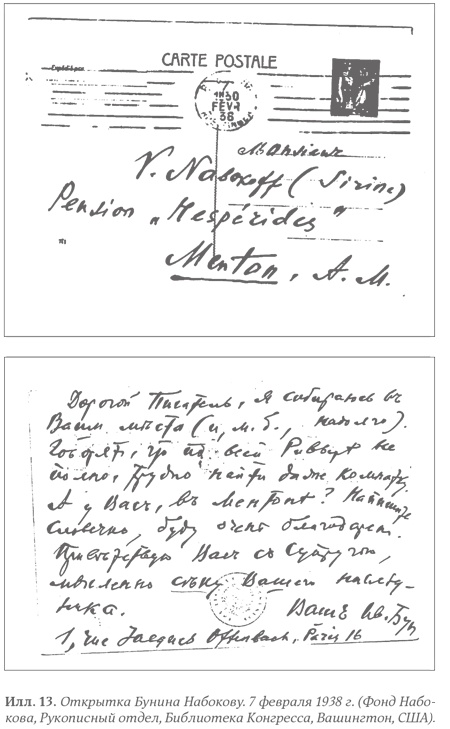 CARTE POSTALE
1H30
FEVR
38
Monsieur
V. Nabokoff (Sirine)
Pension „Hespérides“
Menton, A. M.
Дорогой Писатель, я собираюсь въ
Ваши мѣста (и, м. б., надолго).
Говорятъ, что на всей Ривьерѣ не
полно, трудно найти даже комнату.
А у Васъ, въ Ментонѣ? Напишите
словечко, буду очень благодаренъ.
Привѣтствую Васъ съ Супругой,
мысленно Вашего наслѣд-
ника. Вашъ Ив. Бун
1, rue Jacques Offenbach, Paris 16
Илл. 13. Открытка Бунина Набокову. 7 февраля 1938 г. (Фонд Набо-
кова, Рукописный отдел, Библиотека Конгресса, Вашингтон, США).